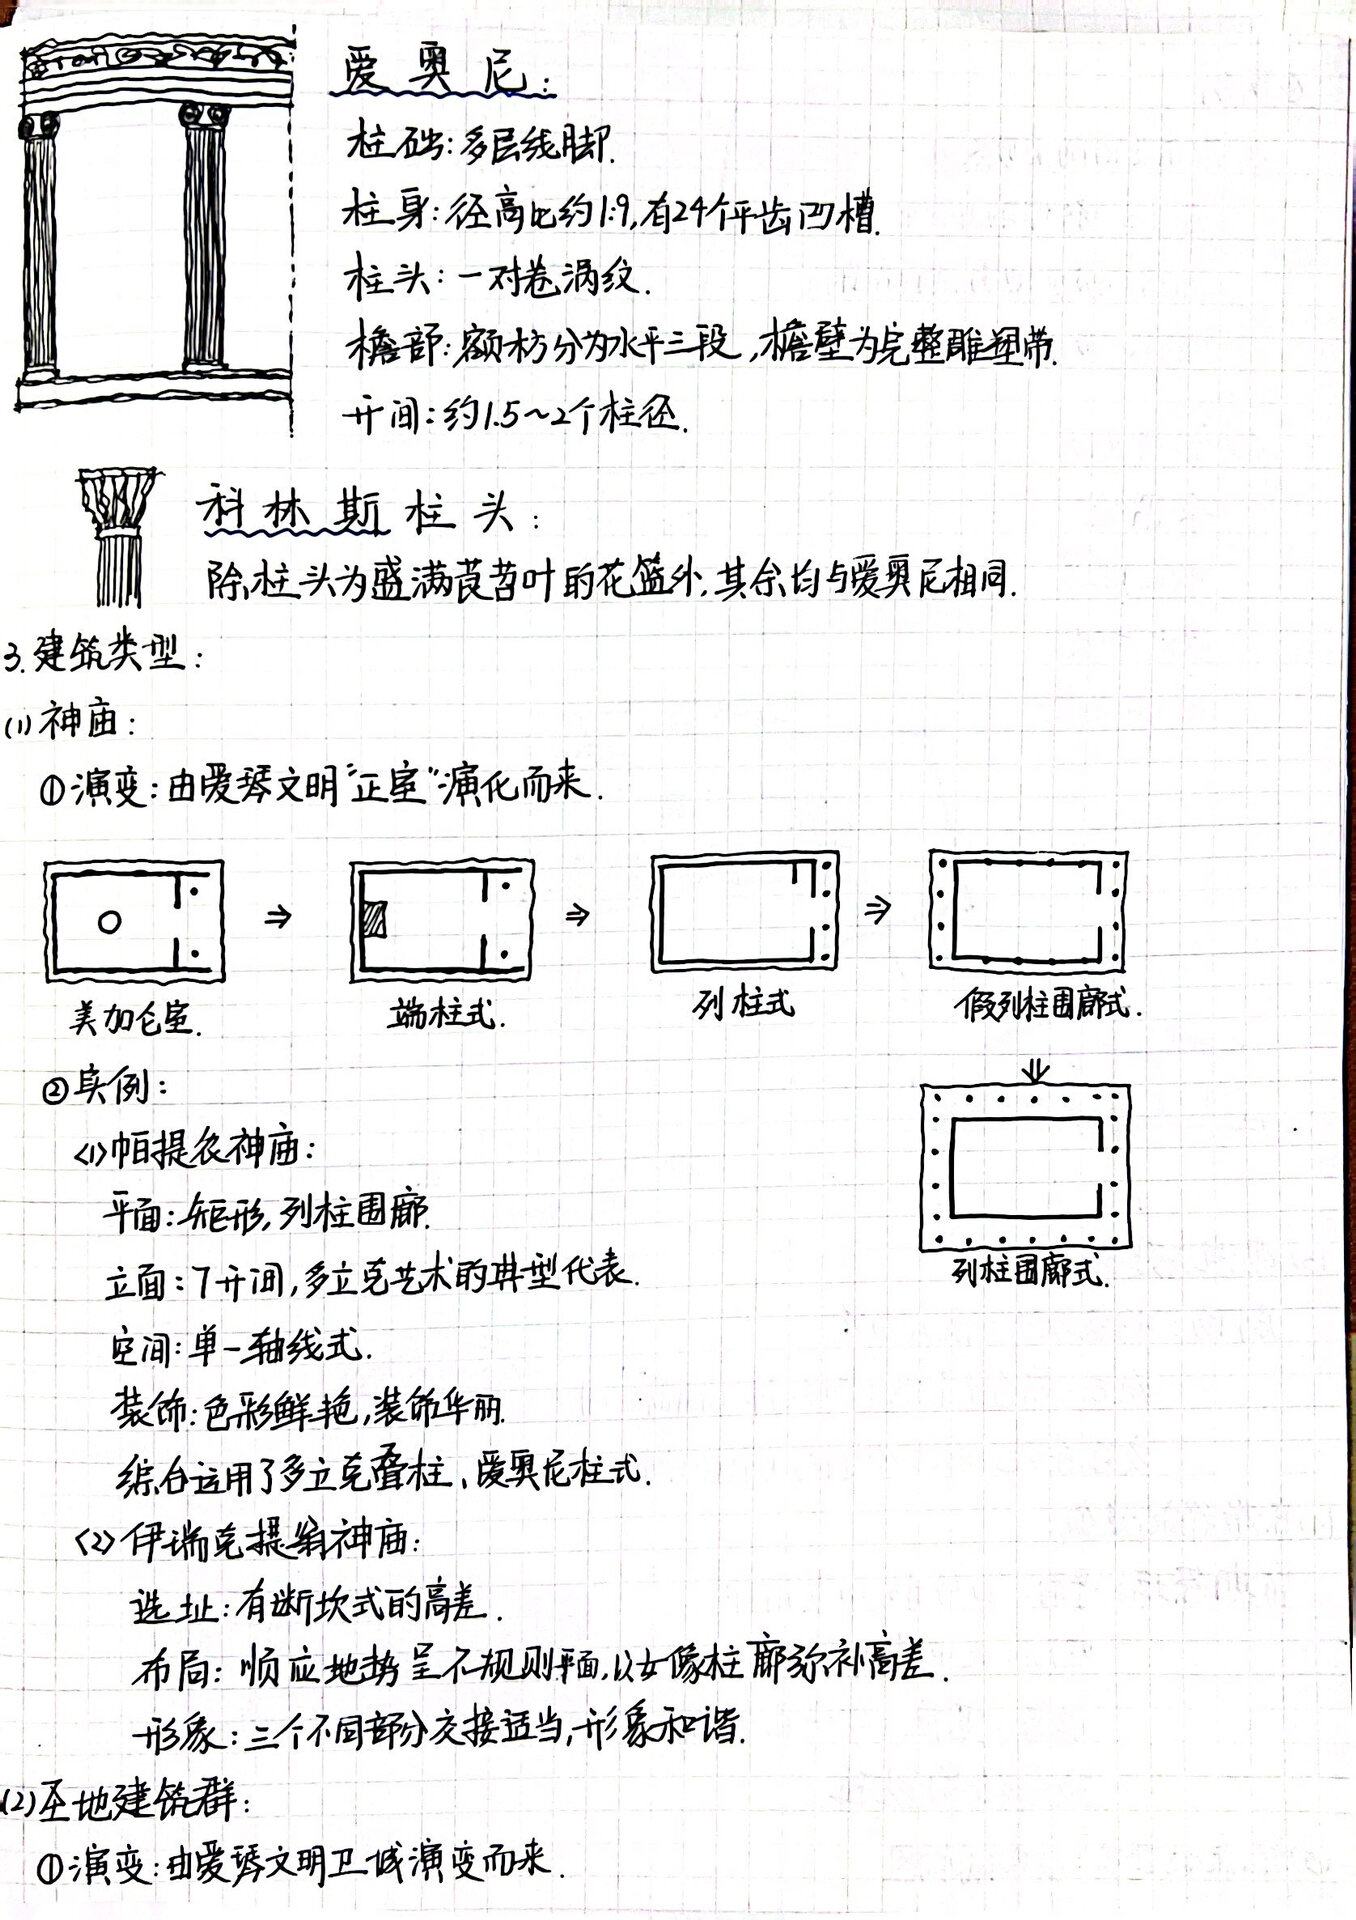 爱奥尼:
柱础:多层线脚.
柱身:径高比约1:9,有24个平齿凹槽.
柱头:一对卷涡纹.
檐部:额枋分为水平三段,檐壁为完整雕塑带.
开间:约1.5~2个柱径.
科林斯柱头:
除柱头为盛满茛苕叶的花篮外,其余均与爱奥尼相同.
3.建筑类型:
(1)神庙:
①演变:由爱琴文明“正室”演化而来.
美加仑室.
端柱式.
列柱式
假列柱围廊式.
列柱围廊式.
②实例:
<1>帕提农神庙:
平面:矩形,列柱围廊.
立面:7开间,多立克艺术的典型代表.
空间:单一轴线式.
装饰:色彩鲜艳,装饰华丽.
综合运用了多立克叠柱、爱奥尼柱式.
<2>伊瑞克提翁神庙:
选址:有断坎式的高差.
布局:顺应地势呈不规则平面,以女像柱廊弥补高差.
形象:三个不同部分交接适当,形象和谐.
(2)圣地建筑群:
①演变:由爱琴文明卫城演变而来.